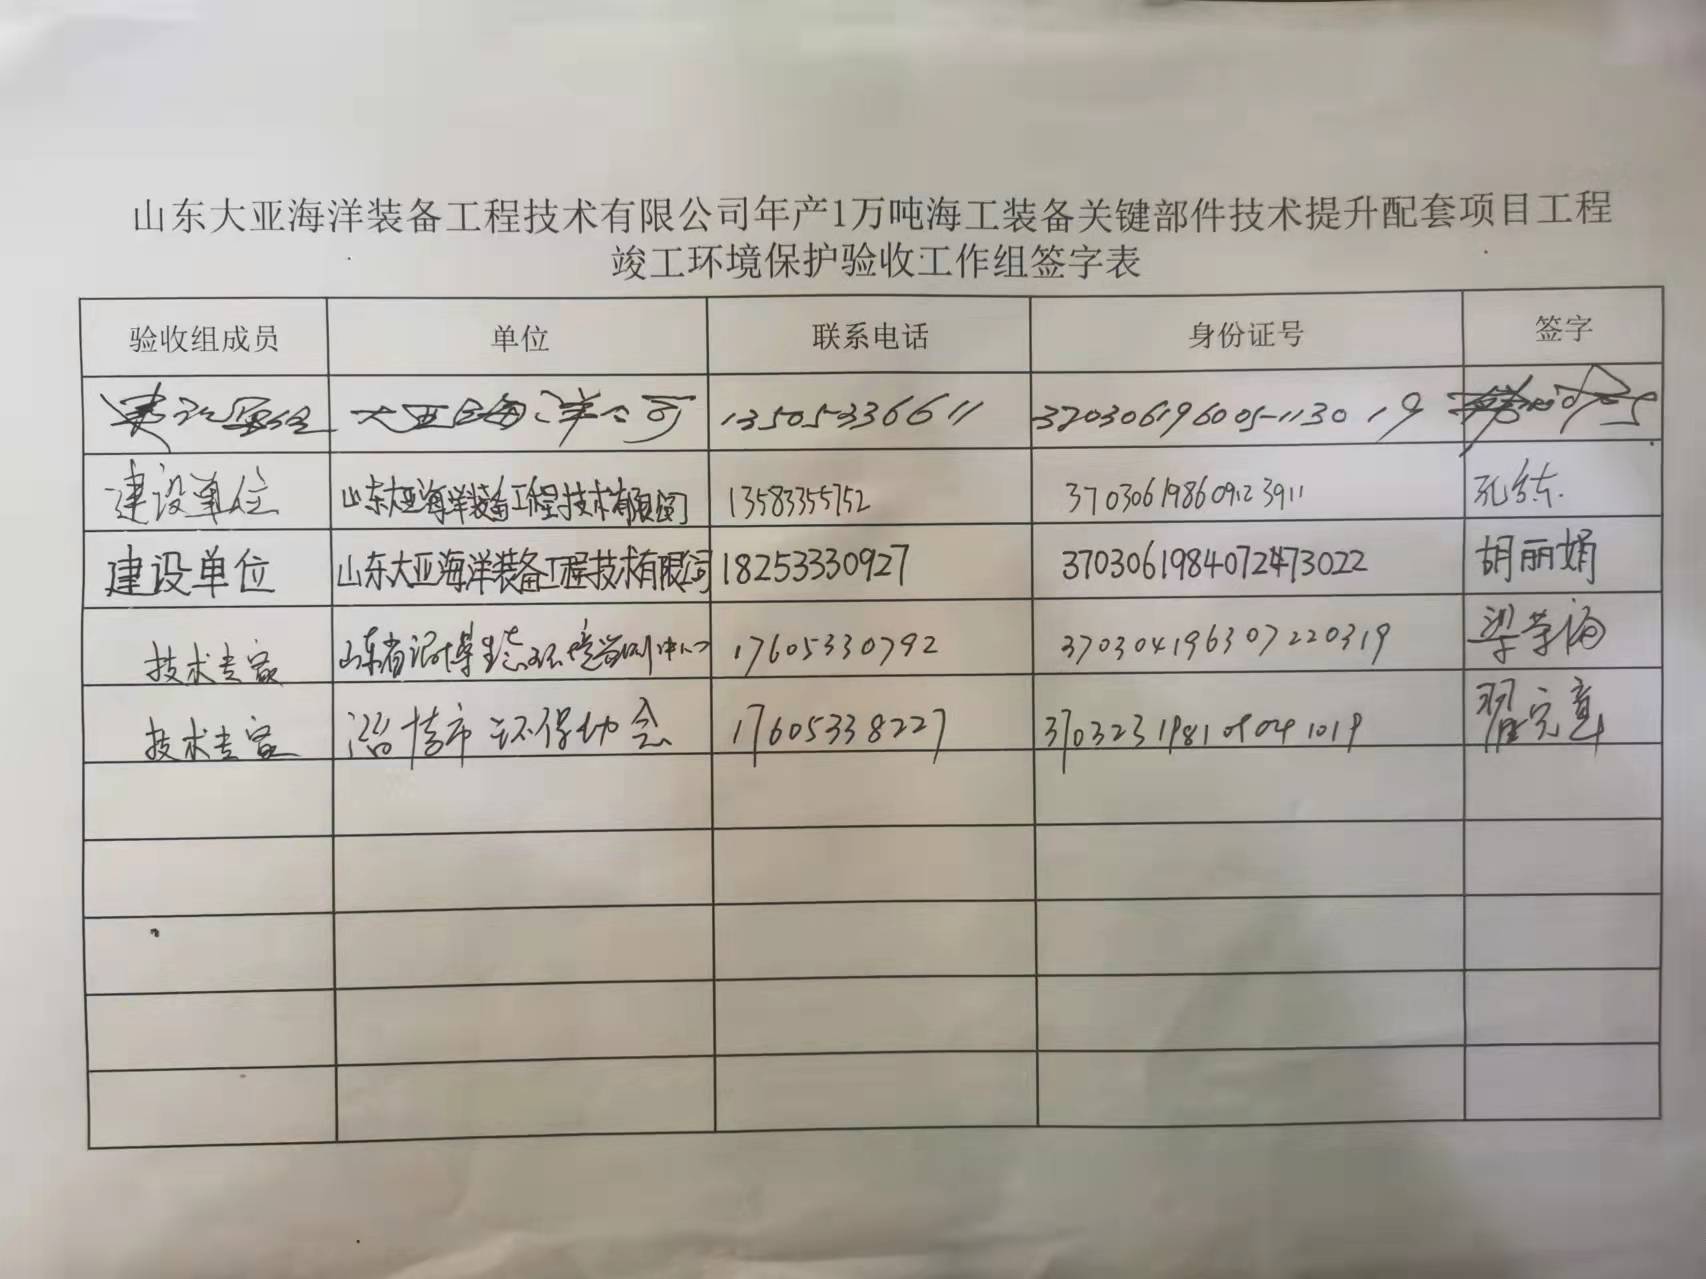 山东大亚海洋装备工程技术有限公司年产1万吨海工装备关键部件技术提升配套项目工程
竣工环境保护验收工作组签字表
验收组成员 单位 联系电话 身份证号 签字
大亚海洋公司 13505336611
建设单位 山东大亚海洋装备工程技术有限公司 13583355752 370306198609123911
建设单位 山东大亚海洋装备工程技术有限公司 18253330927 370306198407243022 胡丽娟
技术专家 山东省淄博生态环境 中心 17605330792 370304196307220319 梁荣
技术专家 淄博市环保协会 17605338227 翟完章